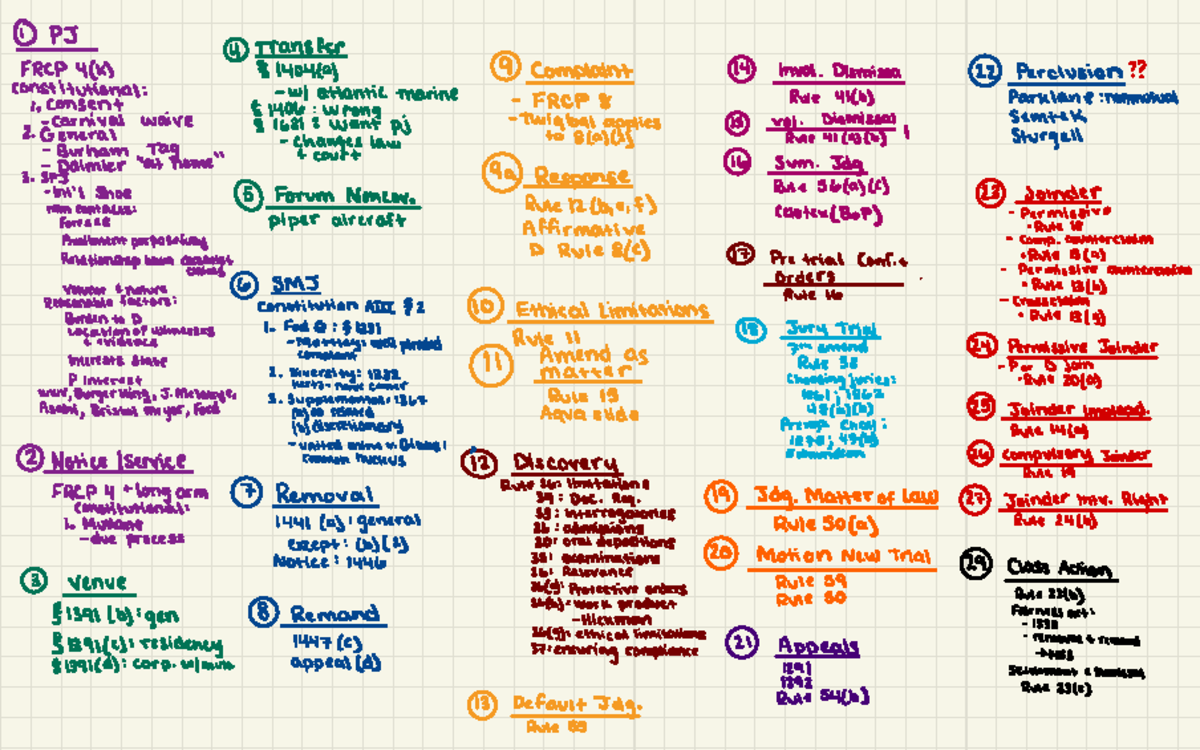 1 PJ
FRCP 4(k)
Constitutional:
1. Consent
- Carnival waive
2. General
- Burham Tag
- Daimler "at home"
3. SPJ
- Int'l Shoe
min contacts:
Forseee
Availment purposefully
Relationship between
Volume & nature
Reasonable factors:
Burden to D
Location of witnesses
& evidence
Interests State
P Interest
WWV, Burger King, J. McIntyre,
Asahi, Bristol myer, Ford
2 Notice / Service
FRCP 4 + long arm
Constitutional:
1. Mullane
- due process
3 Venue
§ 1391 (b): gen
§ 1391(c): residency
§ 1391(d): corp. w/min
4 Transfer
§ 1404(a)
- w/ atlantic marine
§ 1406 : wrong
§ 1631 : want pj
- changes law
+ court
5 Forum Nonconv.
piper aircraft
6 SMJ
Constitution ADIII § 2
1. Fed Q : § 1331
- Mottley: well pleaded
complaint
2. Diversity: 1332
hertz - nerve center
3. Supplemental: 1367
(a) so related
(c) discretionary
- united mine v. Gibbs:
common nucleus
7 Removal
1441 (a): general
except: (b)(2)
Notice: 1446
8 Remand
1447 (c)
appeal (d)
9 Complaint
- FRCP 8
- Twiqbal applies
to 8(a)(2)
9a Response
Rule 12 (b, e, f)
Affirmative
D Rule 8(c)
10 Ethical Limitations
Rule 11
11 Amend as
matter
Rule 15
Aqua slide
12 Discovery
Rule 26: limitations
34: Doc. Req.
33: interrogatories
36: admissions
30: oral depositions
35: examinations
26: Relevance
26(c): Protective orders
26(b): work product
- Hickman
26(g): ethical limitations
37: ensuring compliance
13 Default Jdg.
Rule 55
14 Invol. Dismissa
Rule 41(b)
15 Vol. Dismissal
Rule 41(a)(b)
16 Sum. Jdg
Rule 56(a)(c)
Celotex (BoP)
17 Pre trial Conf. &
Orders
Rule 16
18 Jury Trial
7th amend
Rule 38
Choosing juries:
1861; 1862
48(a)(b)
Preemp Chall:
1870; 47(b)
Edmundson
19 Jdg. Matter of Law
Rule 50(a)
20 Motion New Trial
Rule 59
Rule 60
21 Appeals
1291
1292
Rule 54(b)
22 Perclusion ??
Parklane : nonmutual
Semtek
Sturgell
23 Joinder
- Permissive
• Rule 18
- Comp. counterclaim
• Rule 13(a)
- Permissive counterclaim
• Rule 13(b)
- Crossclaim
• Rule 13(g)
24 Permissive Joinder
- P or D join
• Rule 20(a)
25 Joinder Implead.
Rule 14(a)
26 Compulsory Joinder
Rule 19
27 Joinder Intv. Right
Rule 24(b)
29 Class Action
Rule 23(b)
Fairness act:
- 1332
- removal & remand
→ 1453
Settlement & Dismissal
Rule 23(e)